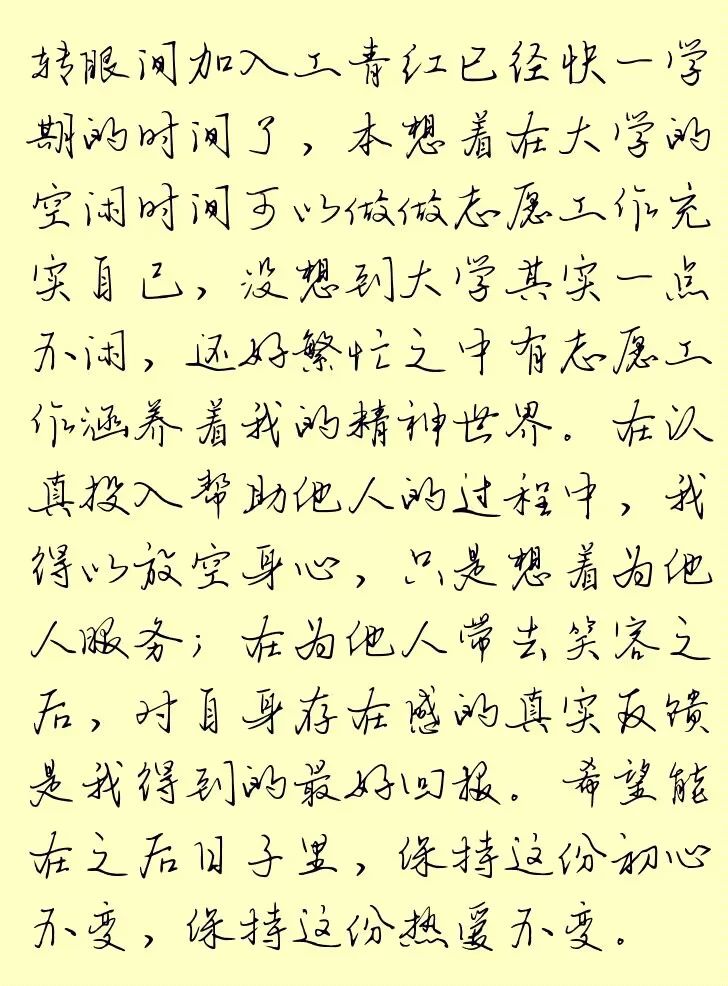 转眼间加入工青红已经快一学
期的时间了，本想着在大学的
空闲时间可以做做志愿工作充
实自己，没想到大学其实一点
不闲，还好繁忙之中有志愿工
作涵养着我的精神世界。在认
真投入帮助他人的过程中，我
得以放空身心，只是想着为他
人服务；在为他人带去笑容之
后，对自身存在感的真实反馈
是我得到的最好回报。希望能
在之后日子里，保持这份初心
不变，保持这份热爱不变。